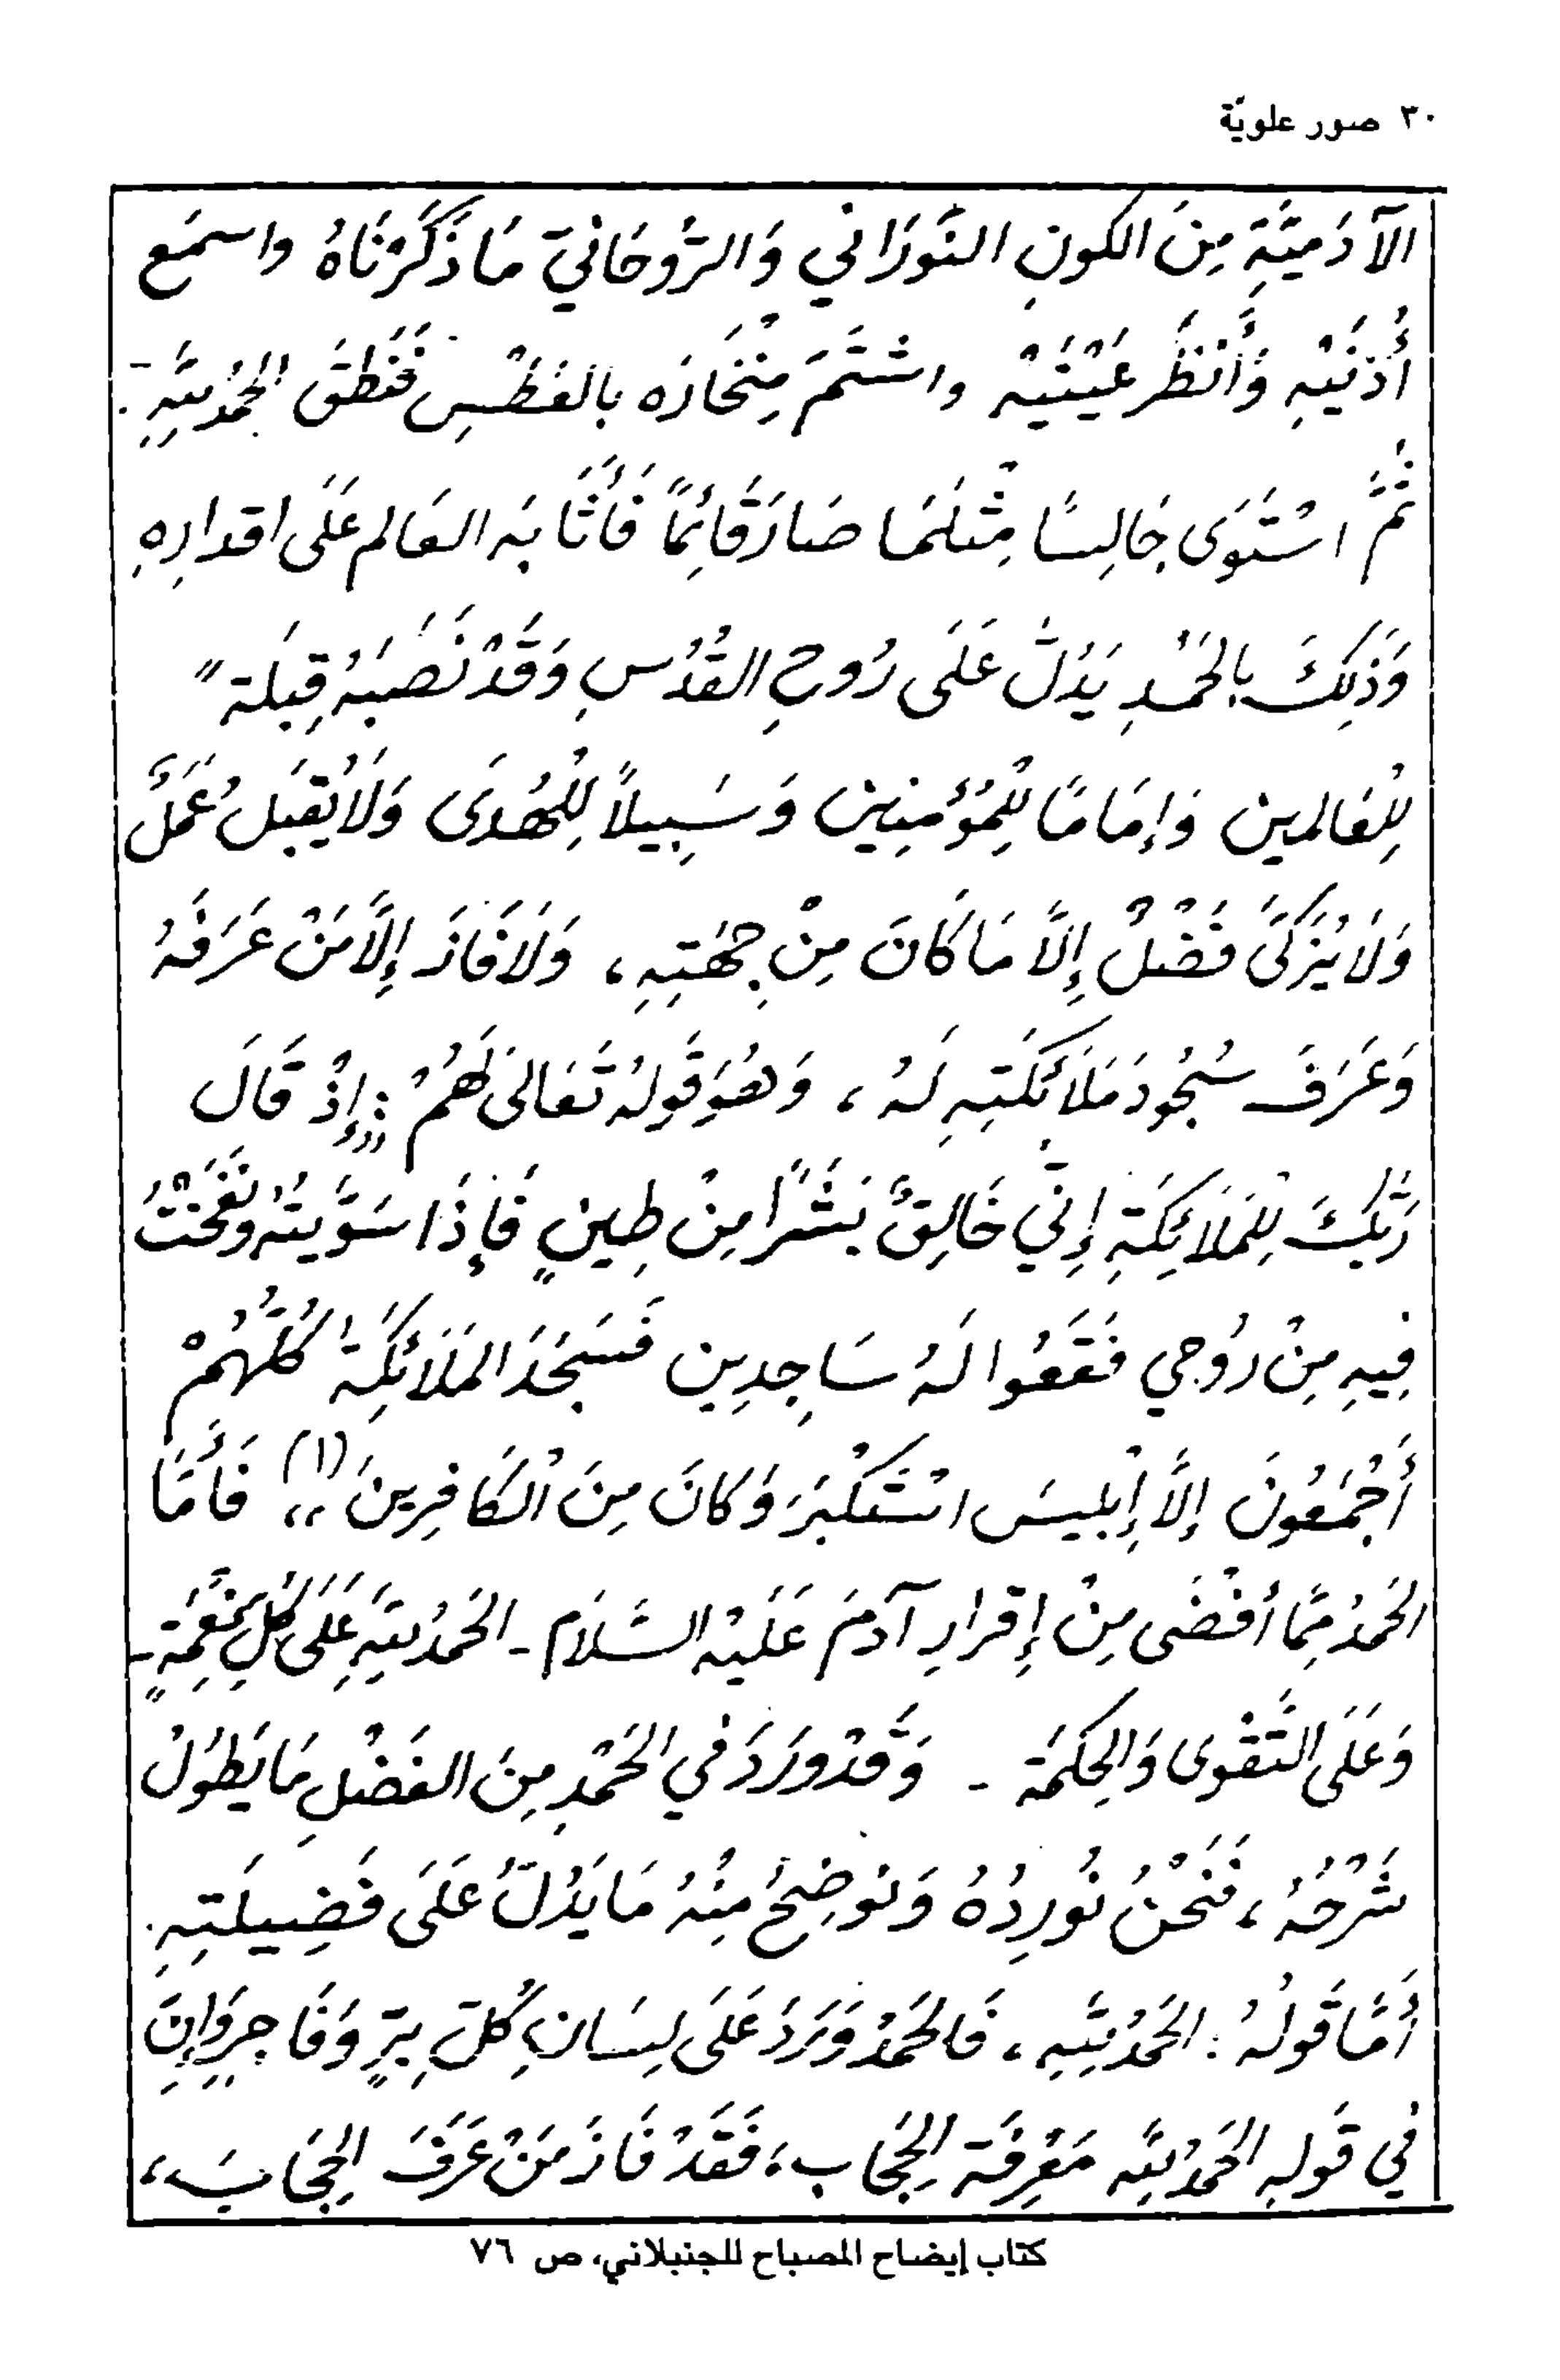 ٣٠ صور علويّة
الآدَميَّةِ مِنَ الكونِ النَّورَاني وَالرَّوحَانيَ مَا ذَكَرْنَاهُ واسمَع
أُذنَيْهِ وَأَنْظَرَ عَيْنَيْهِ واشتَمَ مِنْخَارَه بالعَطْسِ فَنَطقَ الحَمْدُ للهِ -
ثُمَّ اسْتَوَى جَالِسًا مِثْلَمَا صَارَ قَائِمًا فَأَثَابَه العَالم عَلَى اقدارِهِ
وَذَلِكَ بالحَمْدِ يَدُلُّ عَلَى رُوحِ القُدُسِ وَقَدْ نَصَبَهُ قِبلَة"
لِلْعَالمين وَإمَامًا لِلْمُؤْمِنِين وَسَبِيلاً لِلْهُدَى وَلاَ يُقبَل عَمَلٌ
وَلاَ يُزَكَّى فَضْلٌ إلاَّ مَا كَانَ مِنْ جِهَتِهِ ، وَلاَ فَازَ إلاَّ مَنْ عَرَفَهُ
وَعَرَفَ سُجُودَ مَلاَئكَتِهِ لَهُ ، وَهُوَ قَولهُ تَعَالىَ لَهُمْ : "إذْ قَالَ
رَبُّكَ لِلمَلاَئِكَةِ إنّي خَالِقٌ بَشَرًا مِنْ طِينٍ فَإذَا سَوَّيتهُ ونَفَخْتُ
فِيهِ مِنْ رُوحي فَقَعُوا لَهُ سَاجِدِين فَسَجَدَ المَلاَئكَةُ كُلُّهُمْ
أَجْمَعُونَ إلاَّ إبْليسَ اسْتَكْبَرَ وَكَانَ مِنَ الْكَافِرِينَ"(١) فَأَمَّا
الحَمدُ مِمَّا أفْضَى مِنْ إقرارِ آدمَ عَلَيْهِ السَّلاَم - الحَمدُ للهِ عَلَى كُلِ نِعْمَةٍ -
وَعَلَى التَّقْوى وَالحِكمَة - وَقَدْ وَرَدَ في الحَمْدِ مِنَ الفَضْلِ مَا يَطُولُ
شَرْحُهُ ، فَنَحْنُ نُورِدُهُ وَنوضِحُ مِنْهُ مَا يَدُلُ عَلَى فَضِيلَتِهِ .
أمَّا قَولُهُ : الحَمْدُ للهِ ، فَالحَمْدُ وَرَدَ عَلَى لِسَانِ كُلَ بِرٍ وَفَاجِرٍ وَإنَ
في قَولهِ الحَمدُ للهِ مَعْرِفَة الحِجَابِ ، فَقَدْ فَازَ مَنْ عَرَفَ الحِجَابَ ،
كتاب إيضاح المصباح للجنبلاني، ص ٧٦